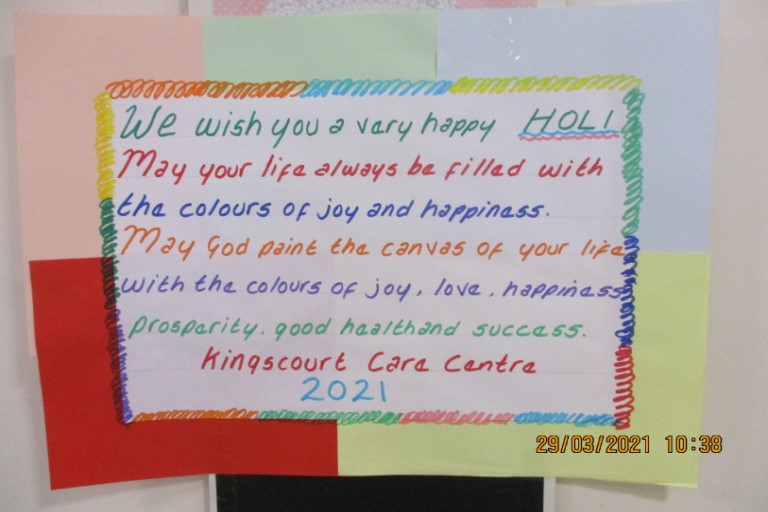 We wish you a very happy HOLI
May your life always be filled with
the colours of joy and happiness.
May God paint the canvas of your life
with the colours of joy, love, happiness
prosperity, good healthand success.
Kingscourt Care Centre
2021
29/03/2021 10:38